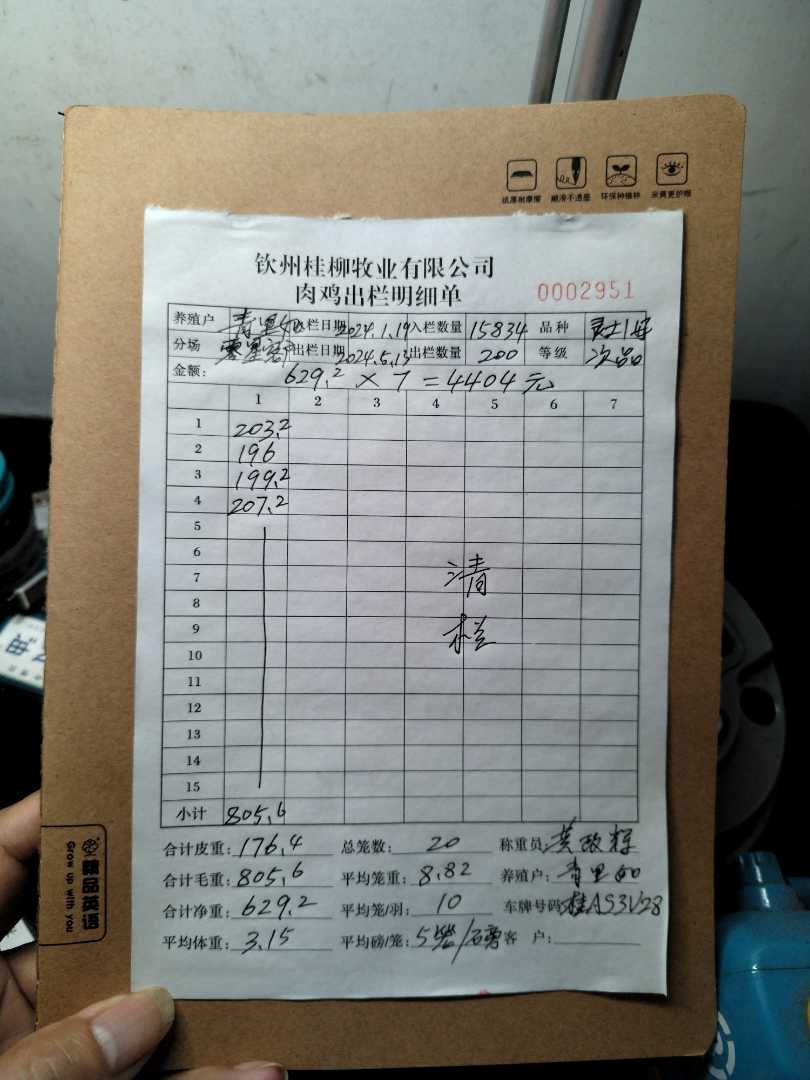 纸厚耐摩擦 顺滑不透墨 环保种植林 米黄更护眼
钦州桂柳牧业有限公司
肉鸡出栏明细单 0002951
养殖户 入栏日期 2024.1.19 入栏数量 15834 品种
分场 零星客户 出栏日期 2024.5.13 出栏数量 200 等级 次品
金额: 629.2 × 7 = 4404元
1 2 3 4 5 6 7
1 203.2
2 196
3 199.2
4 207.2
5
6
7 清
8
9 栏
10
11
12
13
14
15
小计 805.6
合计皮重: 176.4 总笼数: 20 称重员:
合计毛重: 805.6 平均笼重: 8.82 养殖户:
合计净重: 629.2 平均笼/羽: 10 车牌号码: 桂AS3V28
平均体重: 3.15 平均磅/笼: 5 客 户:
品英语
Grow up with you